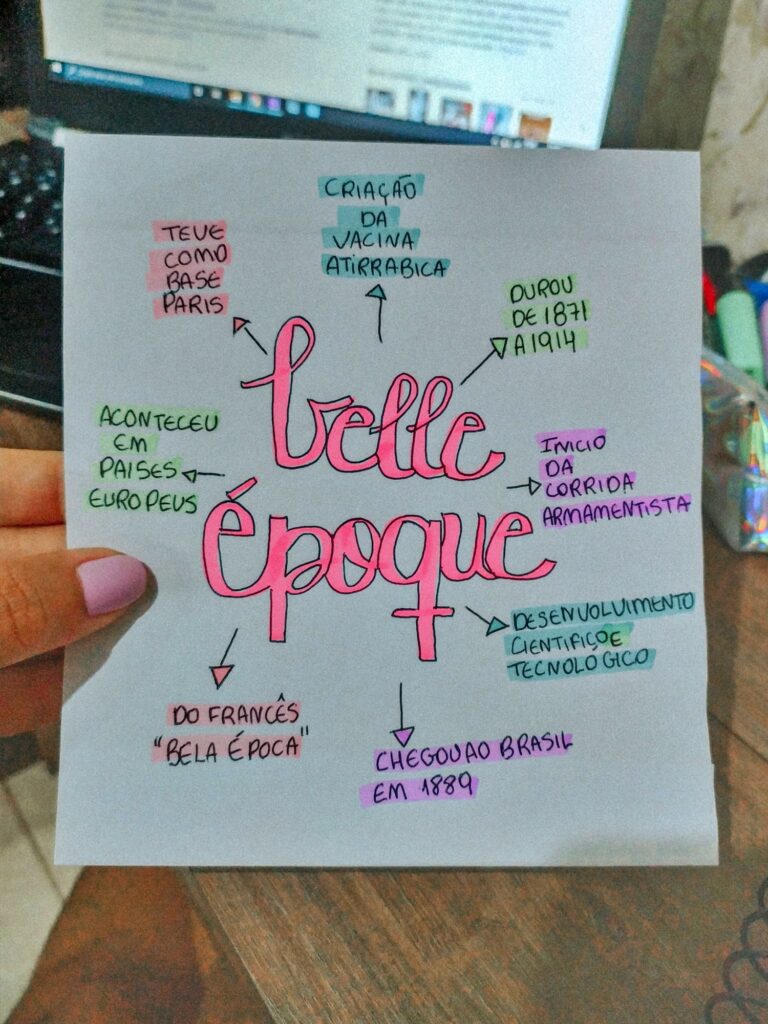 CRIAÇÃO
DA
VACINA
ATIRRABICA
TEVE
COMO
BASE
PARIS
DUROU
DE 1871
A 1914
belle
époque
ACONTECEU
EM
PAISES
EUROPEUS
INICIO
DA
CORRIDA
ARMAMENTISTA
DESENVOLVIMENTO
CIENTIFIÇO E
TECNOLOGICO
DO FRANCÊS
"BELA ÉPOCA"
CHEGOU AO BRASIL
EM 1889